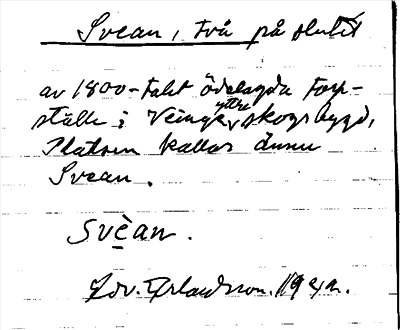 Svean, två på slutet
av 1800-talet ödelagda torp-
ställe i Veinge yttre skogsbygd,
Platsen kallas ännu
Svean.
Svèan.
Edv. Erlandsson.